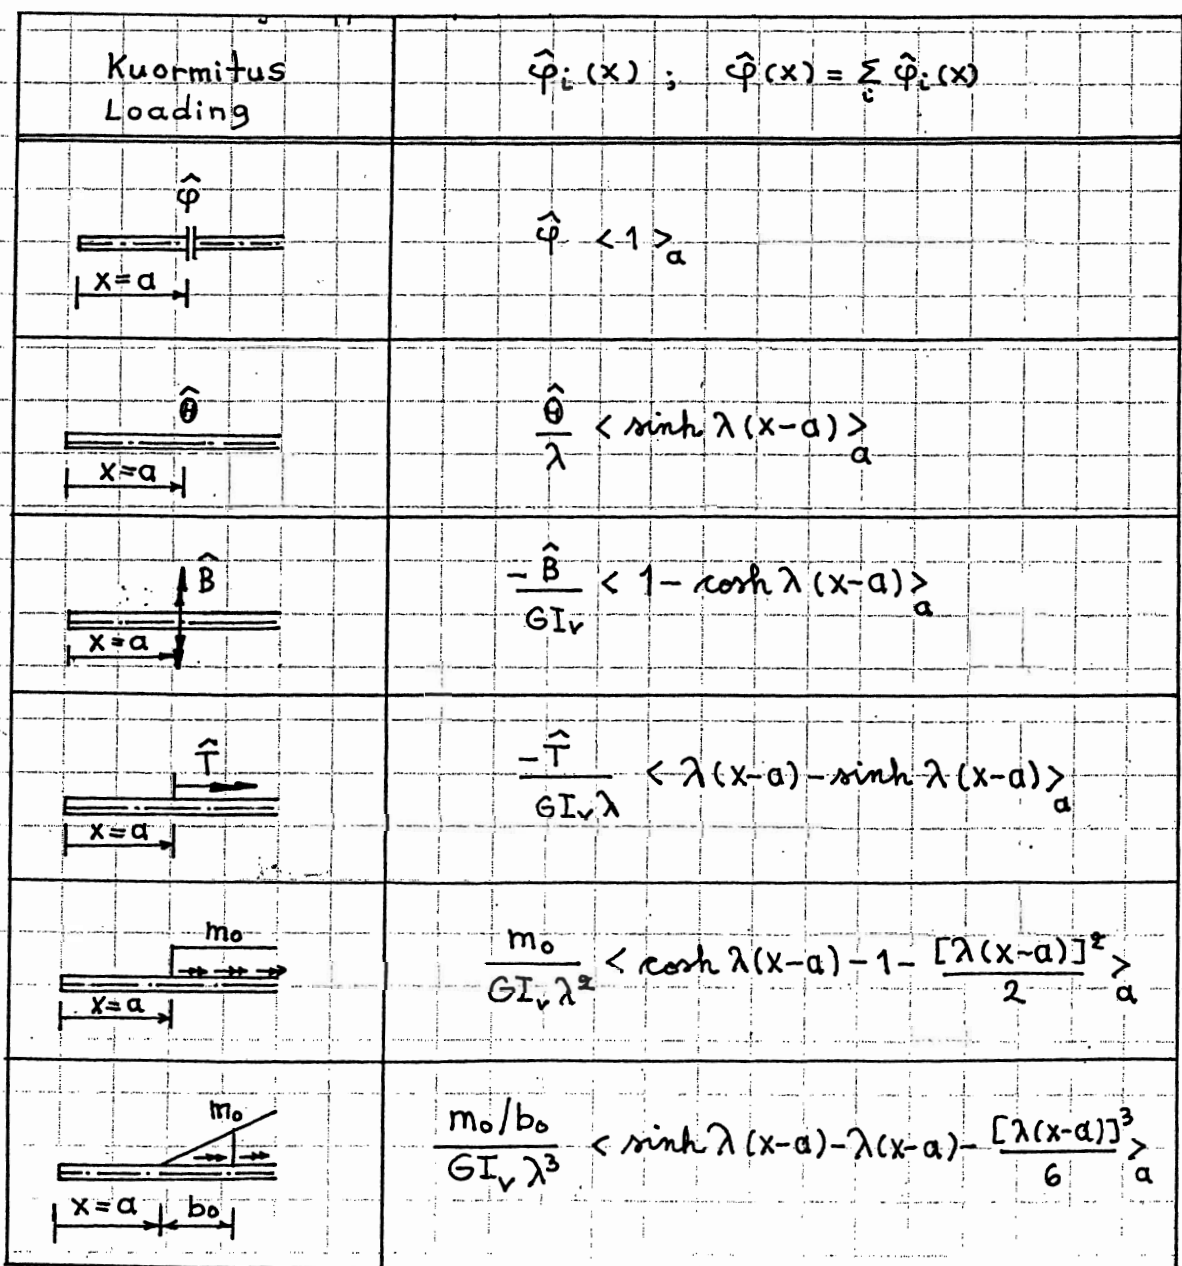 Kuormitus
Loading
φ̂ᵢ(x) ; φ̂(x) = Σᵢ φ̂ᵢ(x)
φ̂
x=a
φ̂ <1>ₐ
θ̂
x=a
θ̂/λ <sinh λ(x-a)>ₐ
B̂
x=a
-B̂/GIᵥ <1-cosh λ(x-a)>ₐ
T̂
x=a
-T̂/GIᵥλ <λ(x-a)-sinh λ(x-a)>ₐ
m₀
x=a
m₀/GIᵥλ² <cosh λ(x-a)-1-[λ(x-a)]²/2>ₐ
m₀
x=a b₀
m₀/b₀/GIᵥλ³ <sinh λ(x-a)-λ(x-a)-[λ(x-a)]³/6>ₐ